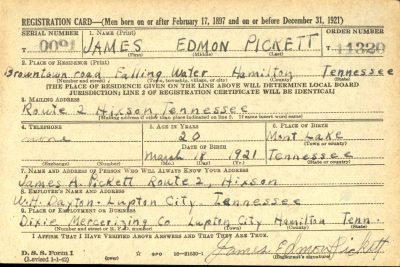 REGISTRATION CARD—(Men born on or after February 17, 1897 and on or before December 31, 1921)
SERIAL NUMBER 1. NAME (Print) ORDER NUMBER
T 0091 JAMES EDMON PICKETT T 11320
(First) (Middle) (Last)
2. PLACE OF RESIDENCE (Print)
Browntown road Falling Water Hamilton Tennessee
(Number and street) (Town, township, village, or city) (County) (State)
[THE PLACE OF RESIDENCE GIVEN ON THE LINE ABOVE WILL DETERMINE LOCAL BOARD
JURISDICTION; LINE 2 OF REGISTRATION CERTIFICATE WILL BE IDENTICAL]
3. MAILING ADDRESS
Route 2 Hixson Tennessee
[Mailing address if other than place indicated on line 2. If same insert word same]
4. TELEPHONE 5. AGE IN YEARS 6. PLACE OF BIRTH
none 20 Mont Lake
DATE OF BIRTH (Town or county)
March 18 1921 Tennessee
(Exchange) (Number) (Mo.) (Day) (Yr.) (State or country)
7. NAME AND ADDRESS OF PERSON WHO WILL ALWAYS KNOW YOUR ADDRESS
James A. Pickett Route 2 Hixson
8. EMPLOYER'S NAME AND ADDRESS
W.H. Dayton - Lupton City. Tennessee
9. PLACE OF EMPLOYMENT OR BUSINESS
Dixie Mercerizing Co Lupton City Hamilton Tenn.
(Number and street or R. F. D. number) (Town) (County) (State)
I AFFIRM THAT I HAVE VERIFIED ABOVE ANSWERS AND THAT THEY ARE TRUE.
James Edmon Pickett
D. S. S. Form 1 (over)
(Revised 1-1-42) (Registrant's signature)